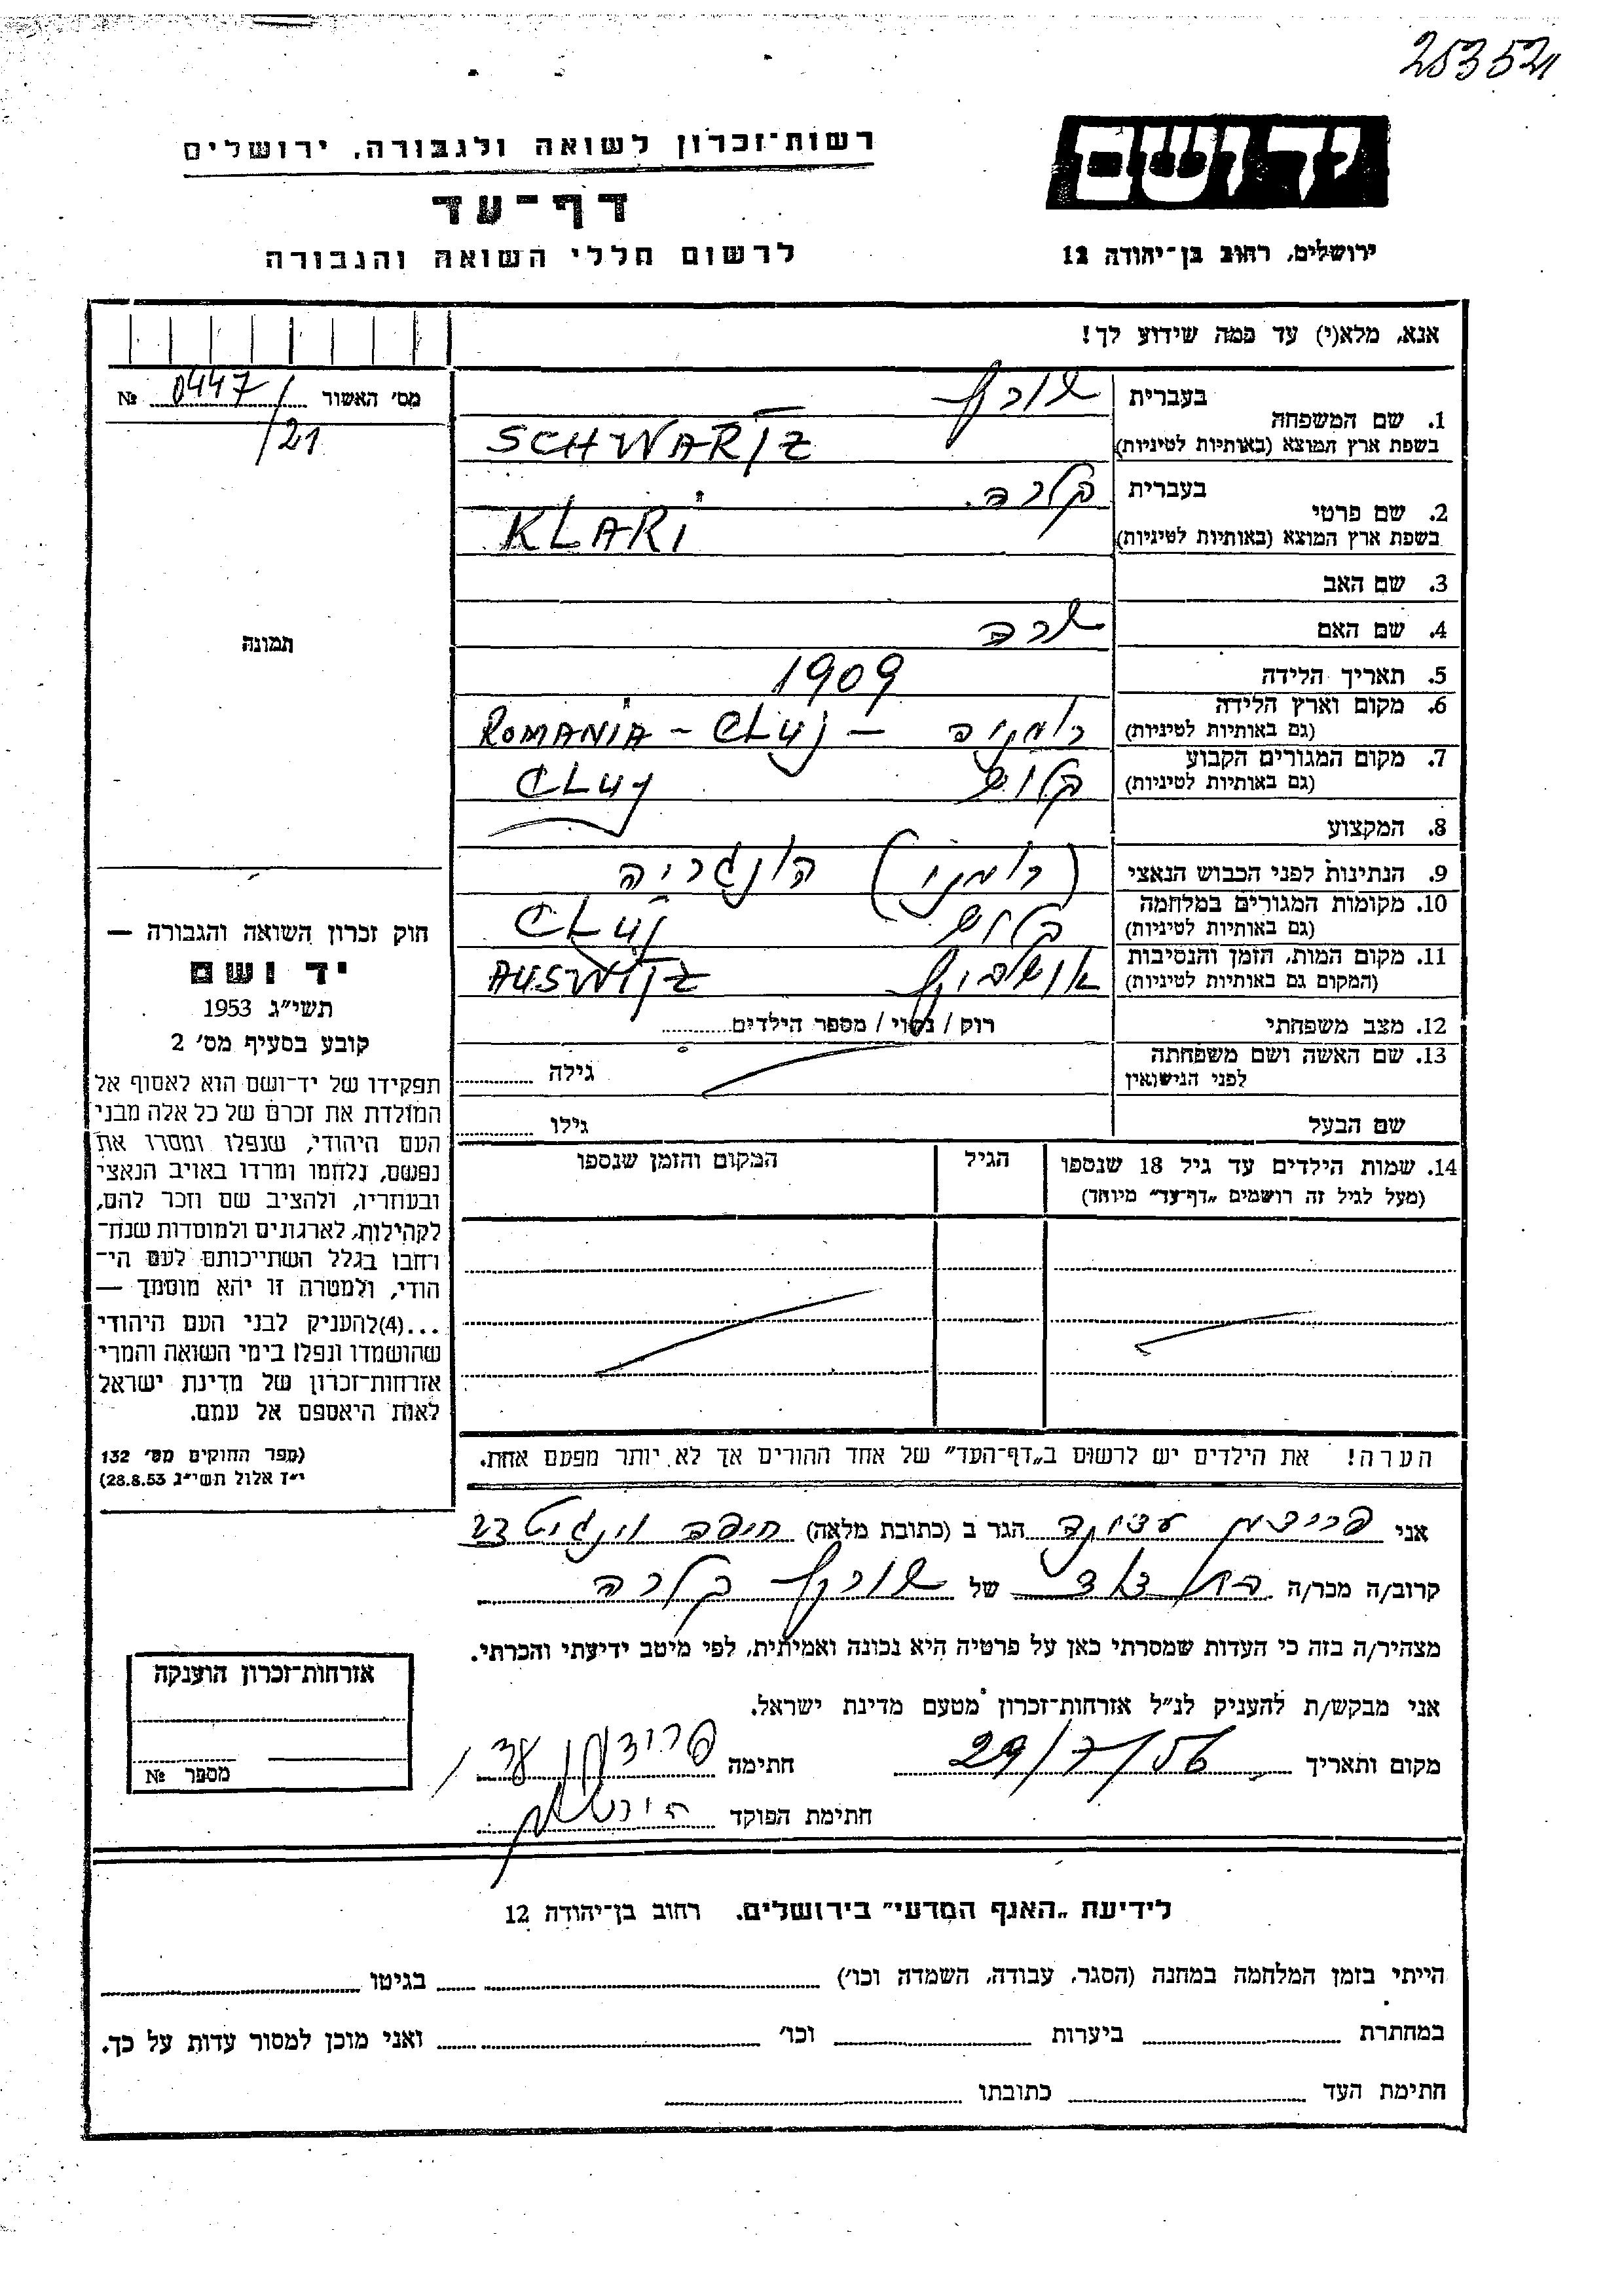 253521
יד ושם
רשות־זכרון לשואה ולגבורה, ירושלים
דף־עד
לרשום חללי השואה והגבורה
ירושלים, רחוב בן־יהודה 12
אנא, מלא(י) עד כמה שידוע לך!
מס' האשור 0447/ №
/21
1. שם המשפחה
בעברית שורץ
בשפת ארץ המוצא (באותיות לטיניות) SCHWARTZ
2. שם פרטי
בעברית קלרה
בשפת ארץ המוצא (באותיות לטיניות) KLARI
3. שם האב
4. שם האם שרה
תמונה
5. תאריך הלידה 1909
6. מקום וארץ הלידה
(גם באותיות לטיניות) רומניה – ROMANIA - CLUJ
7. מקום המגורים הקבוע
(גם באותיות לטיניות) קלוש CLUJ
8. המקצוע
9. הנתינות לפני הכבוש הנאצי (רומני) הונגריה
10. מקומות המגורים במלחמה
(גם באותיות לטיניות) קלוש CLUJ
11. מקום המות, הזמן והנסיבות
(המקום גם באותיות לטיניות) אושביץ AUSWITZ
12. מצב משפחתי רוק / נשוי / מספר הילדים
13. שם האשה ושם משפחתה
לפני הנישואין
גילה
שם הבעל גילו
14. שמות הילדים עד גיל 18 שנספו
(מעל לגיל זה רושמים „דף־עד" מיוחד)
הגיל
המקום והזמן שנספו
חוק זכרון השואה והגבורה —
יד ושם
תשי"ג 1953
קובע בסעיף מס' 2
תפקידו של יד־ושם הוא לאסוף אל
המולדת את זכרם של כל אלה מבני
העם היהודי, שנפלו ומסרו את
נפשם, נלחמו ומרדו באויב הנאצי
ובעוזריו, ולהציב שם וזכר להם,
לקהילות, לארגונים ולמוסדות שנח־
רחבו בגלל השתייכותם לעם הי־
הודי, ולמטרה זו יהא מוסמך —
...(4)להעניק לבני העם היהודי
שהושמדו ונפלו בימי השואה והמרי
אזרחות־זכרון של מדינת ישראל
לאות היאספם אל עמם.
(ספר החוקים מס' 132
י"ז אלול תשי"ג 28.8.53)
הערה! את הילדים יש לרשום ב„דף־העד" של אחד ההורים אך לא יותר מפעם אחת.
אני פרידמן הגר ב (כתובת מלאה) חיפה וינגיט 23
קרוב/ה מכר/ה בת דוד של שורץ קלרה
מצהיר/ה בזה כי העדות שמסרתי כאן על פרטיה היא נכונה ואמיתית, לפי מיטב ידיעתי והכרתי.
אני מבקש/ת להעניק לנ"ל אזרחות־זכרון מטעם מדינת ישראל.
מקום ותאריך 29/7/56 חתימה פרידמן
חתימת הפוקד
אזרחות־זכרון הוענקה
מספר №
לידיעת „האגף המדעי" בירושלים. רחוב בן־יהודה 12
הייתי בזמן המלחמה במחנה (הסגר, עבודה, השמדה וכו') בגיטו
במחתרת ביערות וכו' ואני מוכן למסור עדות על כך.
חתימת העד כתובתו